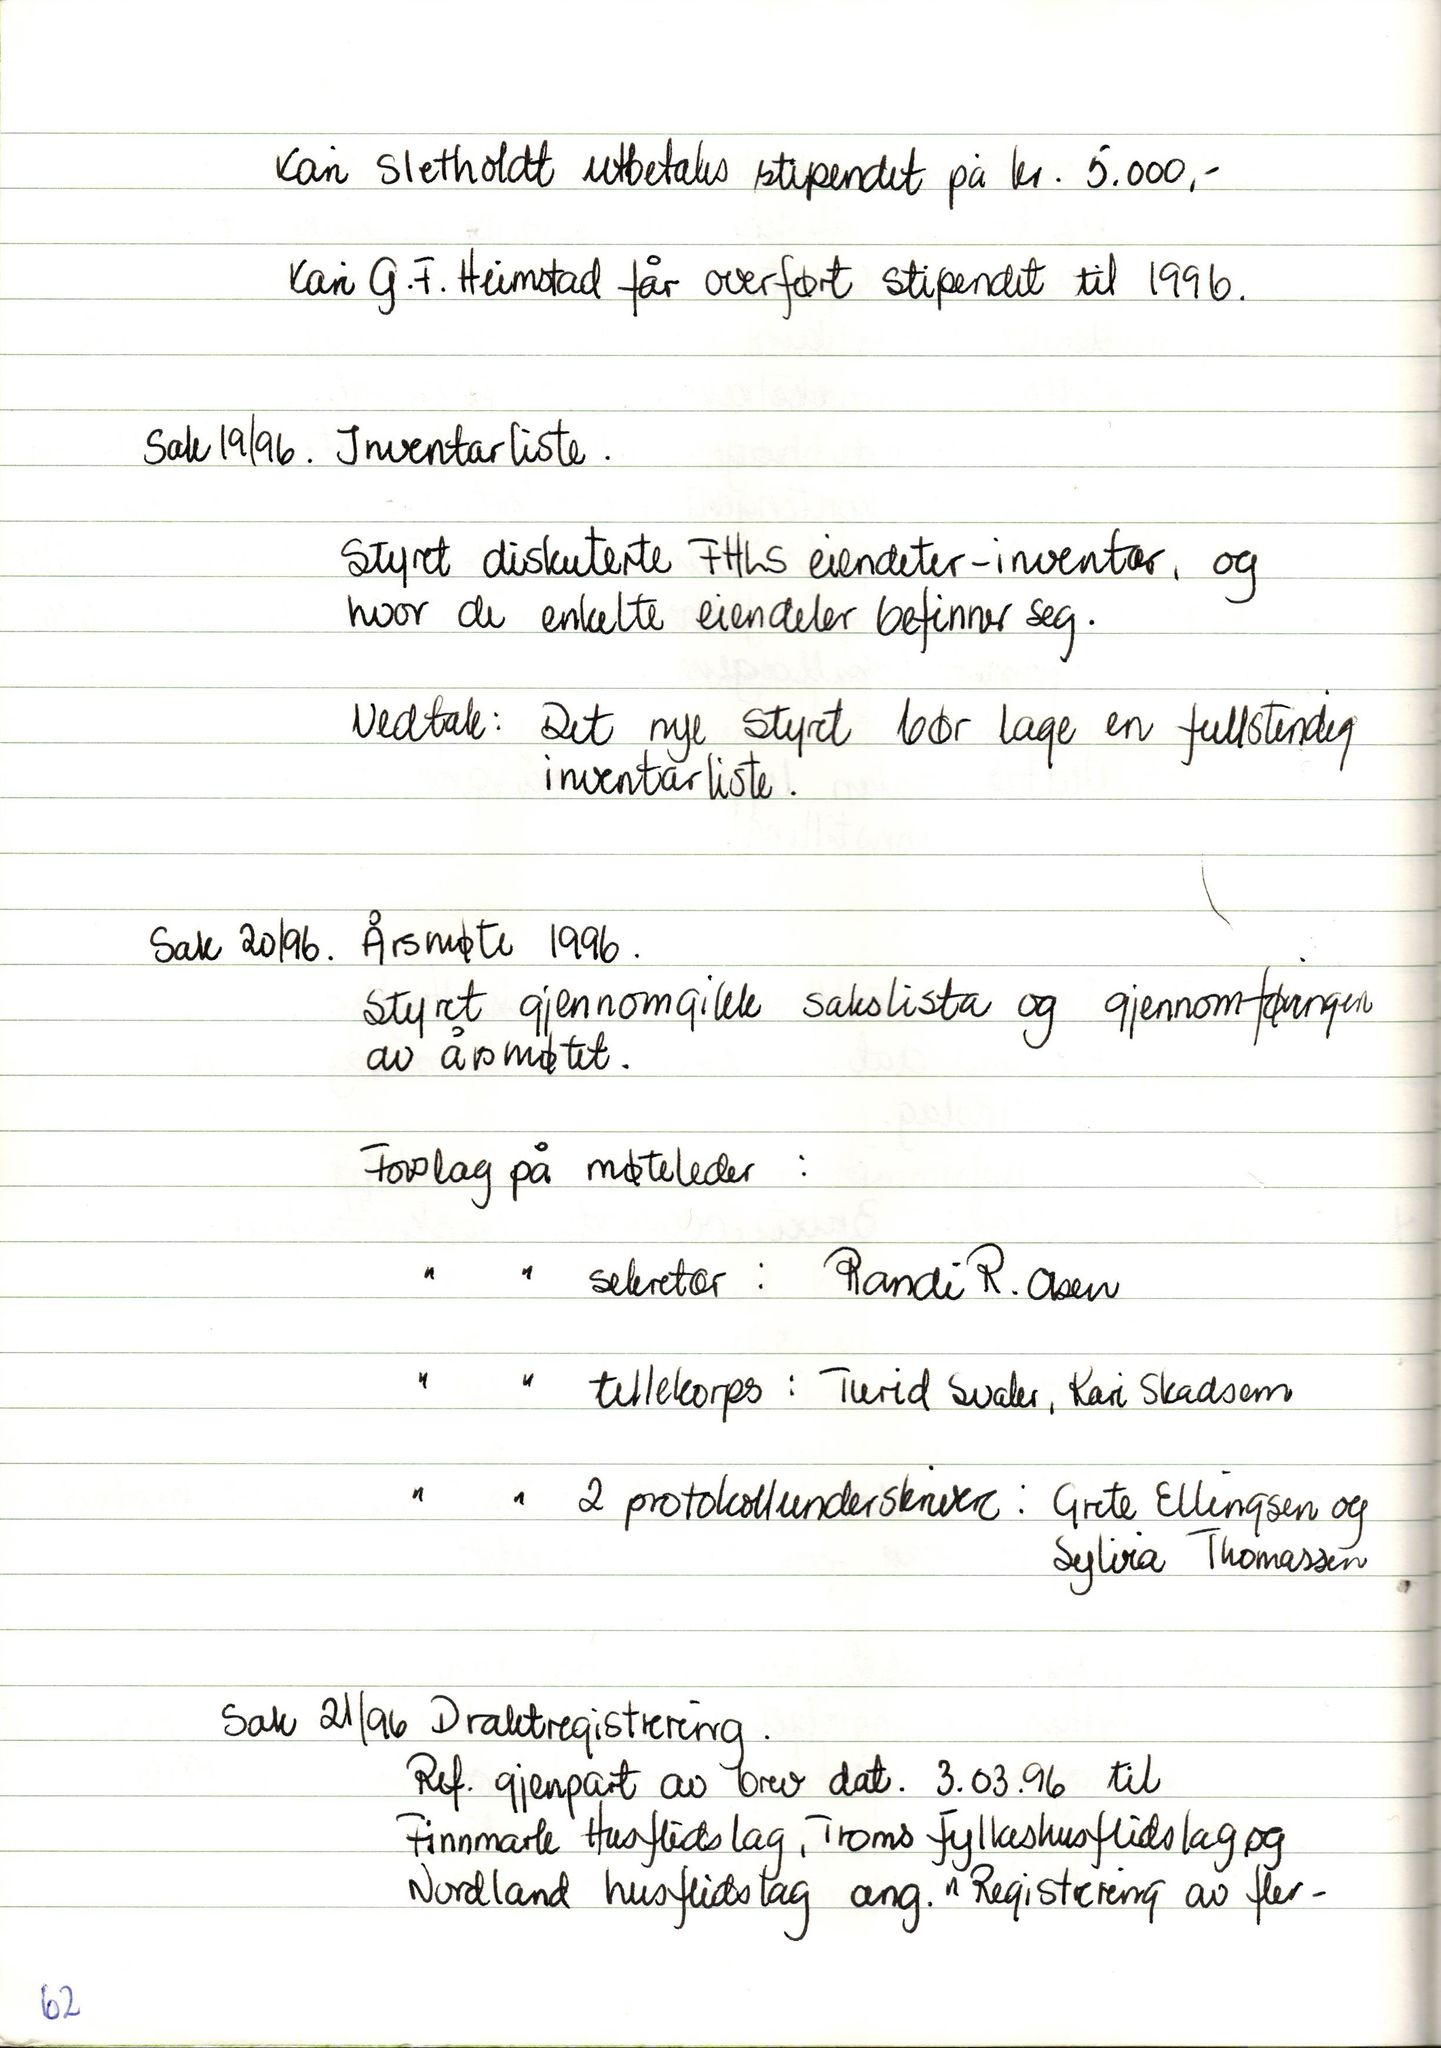 Kari Sletholdt utbetales stipendet på kr. 5.000,-
Kari G.F. Heimstad får overført stipendet til 1996.
Sak 19/96. Inventarliste.
Styret diskuterte FHLS eiendeler-inventar, og
hvor de enkelte eiendeler befinner seg.
Vedtak: Det nye styret bør lage en fullstendig
inventarliste.
Sak 20/96. Årsmøte 1996.
Styret gjennomgikk sakslista og gjennomføringen
av årsmøtet.
Forslag på møteleder :
" " sekretær : Randi R. Olsen
" " tellekorps : Turid Svaler, Kari Skadsem
" " 2 protokollunderskrivere : Grete Ellingsen og
Sylvia Thomassen
Sak 21/96 Draktregistrering.
Ref. gjenpart av brev dat. 3.03.96 til
Finnmark Husflidslag, Troms fylkeshusflidslag og
Nordland husflidslag ang. "Registrering av fler-
62